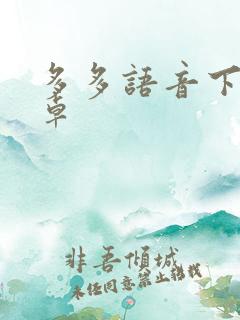 多多語音下
草
非吾傾城
未经同意禁止转载